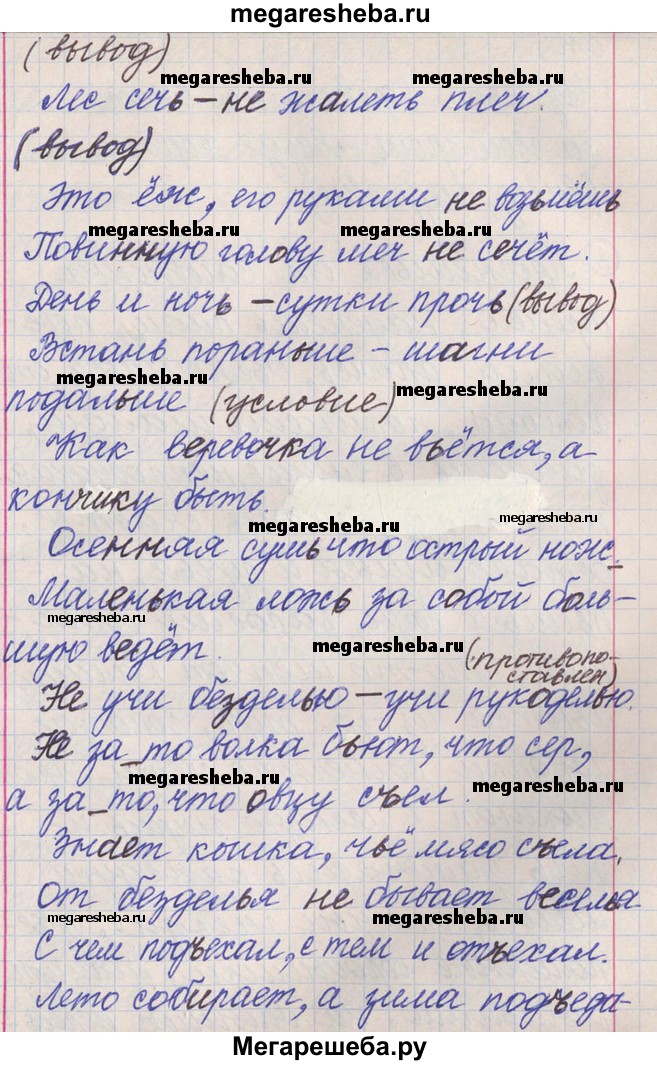 megaresheba.ru
(вывод)
megaresheba.ru megaresheba.ru
Лес сечь – не жалеть плеч.
(вывод)
Это ёж, его руками не возьмёшь
megaresheba.ru megaresheba.ru
Повинную голову меч не сечёт.
День и ночь – сутки прочь (вывод)
Встань пораньше – шагни
megaresheba.ru megaresheba.ru
подальше (условие)
Как веревочка не вьётся, а
кончику быть.
megaresheba.ru megaresheba.ru
Осенняя сушь что острый нож.
Маленькая ложь за собой боль-
megaresheba.ru
шую ведёт.
megaresheba.ru
(противопо-
ставлен)
Не учи безделью – учи рукоделью.
Не за_то волка бьют, что сер,
megaresheba.ru megaresheba.ru
а за_то, что овцу съел.
Знает кошка, чьё мясо съела.
От безделья не бывает веселья
megaresheba.ru megaresheba.ru
С чем подъехал, с тем и отъехал.
Лето собирает, а зима подъеда-
Мегарешеба.ру